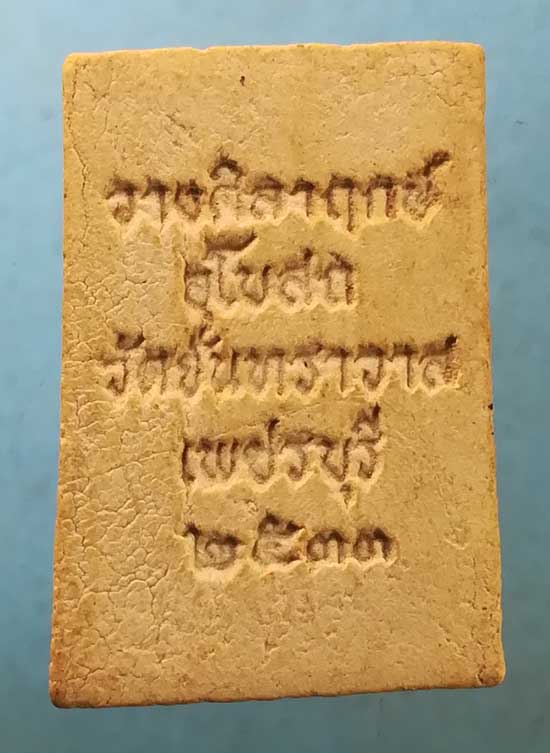 วางศิลาฤกษ์
อุโบสถ
วัดจันทราวาส
เพชรบุรี
๒๕๓๓